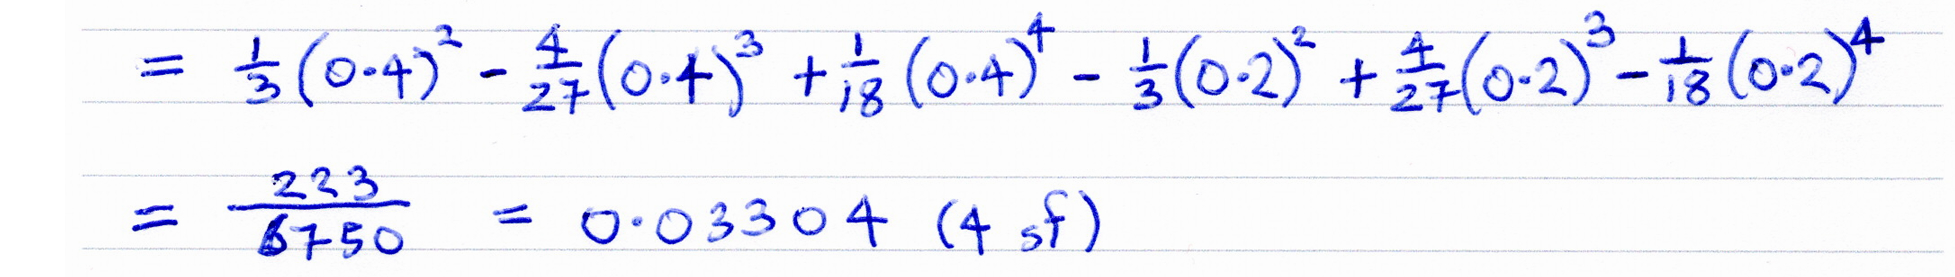 = 1/3(0·4)² - 4/27(0·4)³ + 1/18(0·4)⁴ - 1/3(0·2)² + 4/27(0·2)³ - 1/18(0·2)⁴
= 223/6750 = 0·03304 (4 sf)